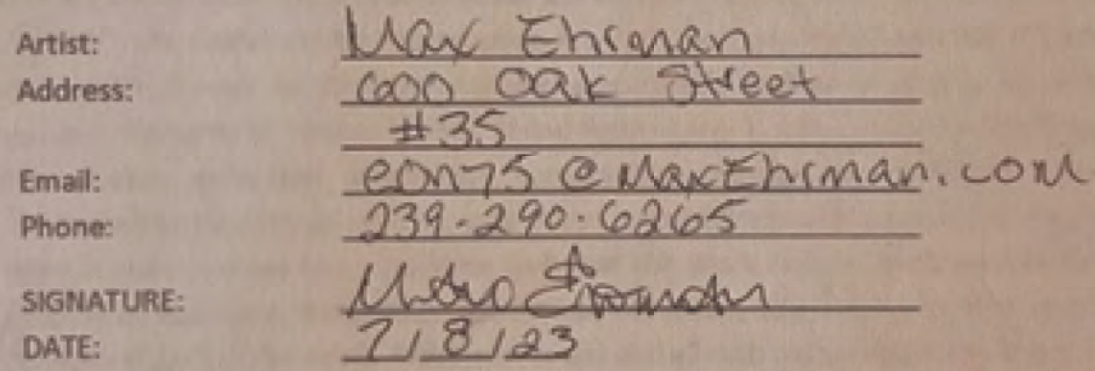 Artist: Max Ehrman
Address: 600 Oak Street
#35
Email: eon75@MaxEhrman.com
Phone: 239-290-6265
SIGNATURE:
DATE: 7/8/23